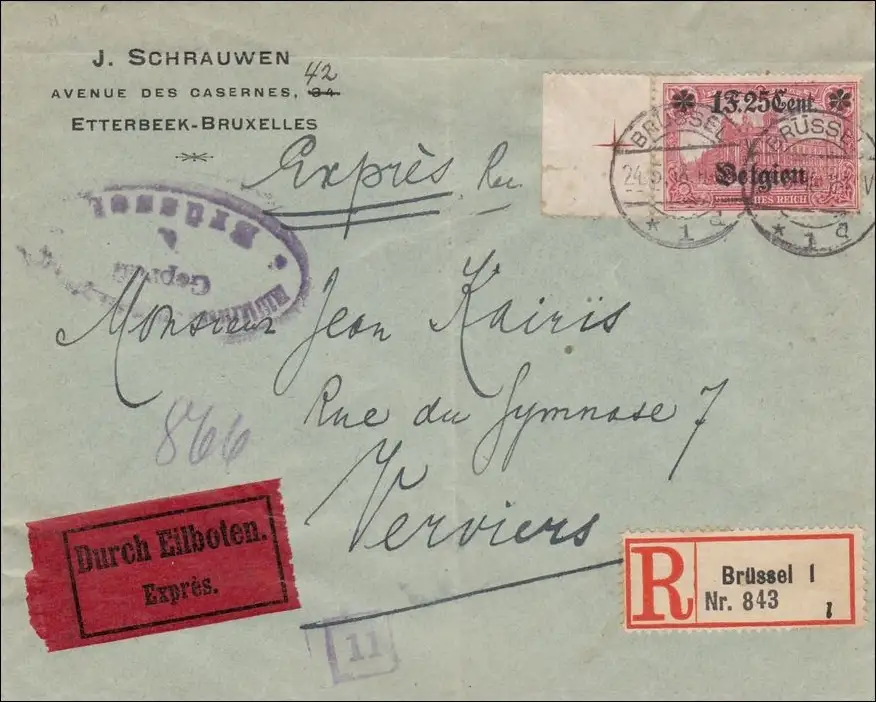 J. SCHRAUWEN
42
AVENUE DES CASERNES, 34.
ETTERBEEK-BRUXELLES
1F.25Cent.
Belgien
REICH
BRÜSSEL
24.5.
* 1 d
BRÜSSEL
* 1 d
Exprès
Brüssel
Monsieur Jean Kairiis
Rue du Gymnase 7
Verviers
866
Durch Eilboten.
Exprès.
R
Brüssel 1
Nr. 843
l
11